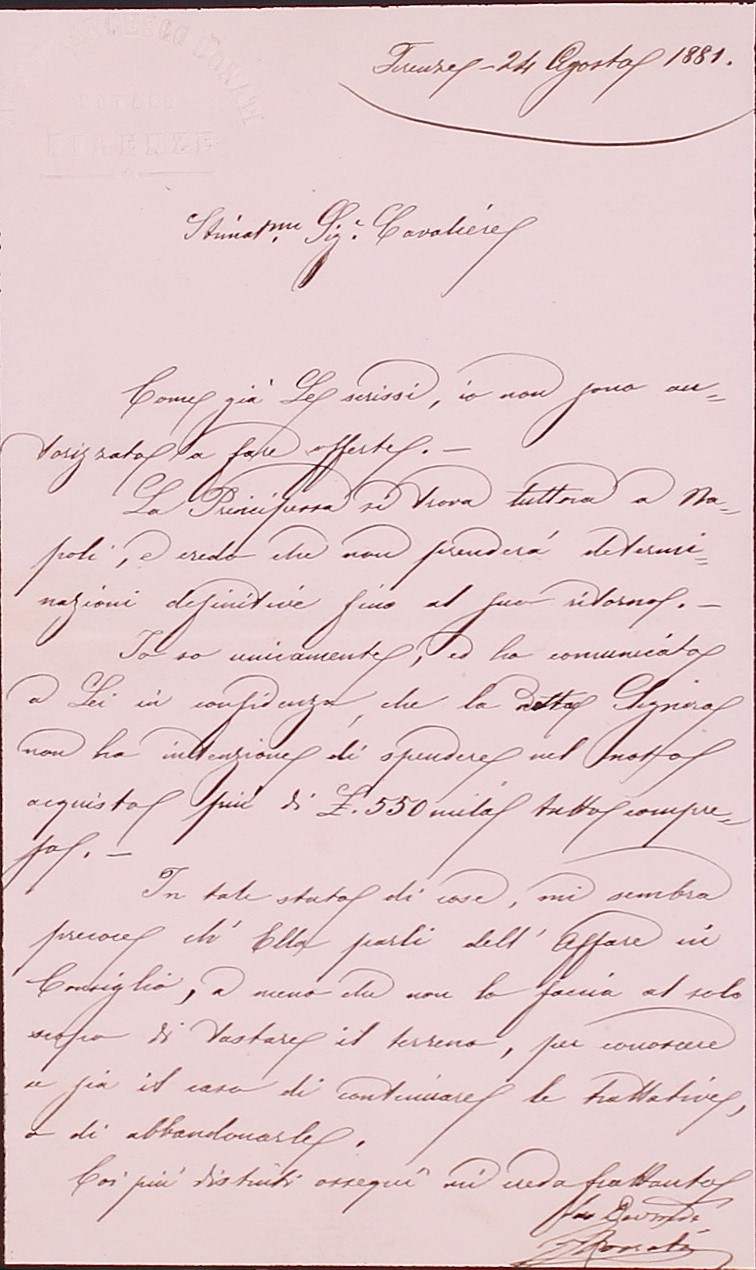 FRANCESCO DONATI
NOTARO
FIRENZE
Firenze - 24 Agosto 1881.
Stimat.mo Sig.r Cavaliere
Come già Le scrissi, io non sono au=
torizzato a fare offerte. —
La Principessa si trova tuttora a Na=
poli, e credo che non prenderà determi=
nazioni definitive fino al suo ritorno. —
Io so unicamente, ed ho comunicato
a Lei in confidenza, che la detta Signora
non ha intenzione di spendere nel noto
acquisto più di £. 550 mila tutto compre=
so. —
In tale stato di cose, mi sembra
precoce ch' Ella parli dell' Affare in
Consiglio, a meno che non lo faccia al solo
scopo di tastare il terreno, per conoscere
se sia il caso di continuare le trattative,
o di abbandonarle.
Coi più distinti ossequi mi creda frattanto
Donati